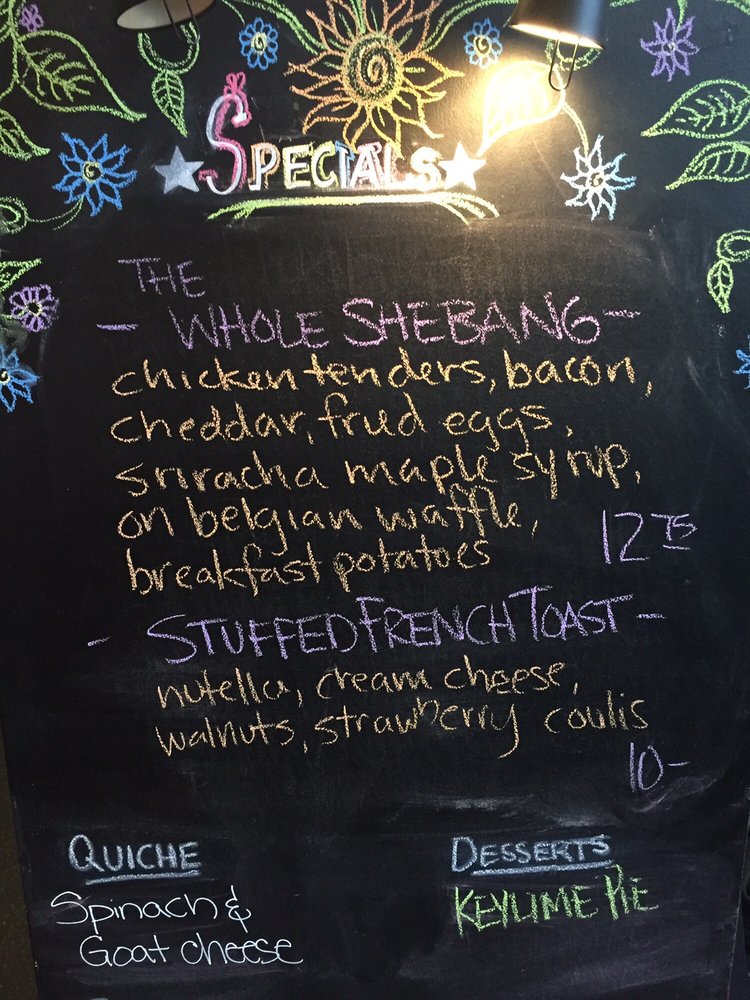 SPECIALS
THE
- WHOLE SHEBANG -
chicken tenders, bacon,
cheddar, fried eggs,
sriracha maple syrup,
on belgian waffle,
breakfast potatoes
12 75
- STUFFED FRENCH TOAST -
nutella, cream cheese,
walnuts, strawberry coulis
10-
QUICHE
Spinach &
Goat cheese
DESSERTS
KEYLIME PIE